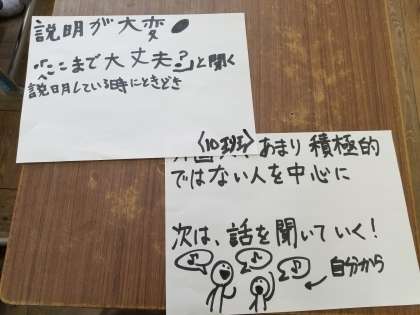 説明が大変
「ここまで大丈夫？」と聞く
説明している時にときどき
〈10班〉あまり積極的
ではない人を中心に
次は、話を聞いていく！
自分から